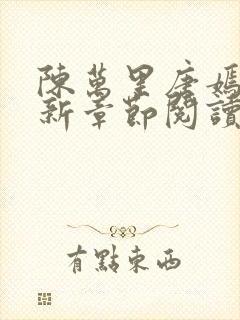 陳萬里唐嫣
新章節閱讀
有點東西